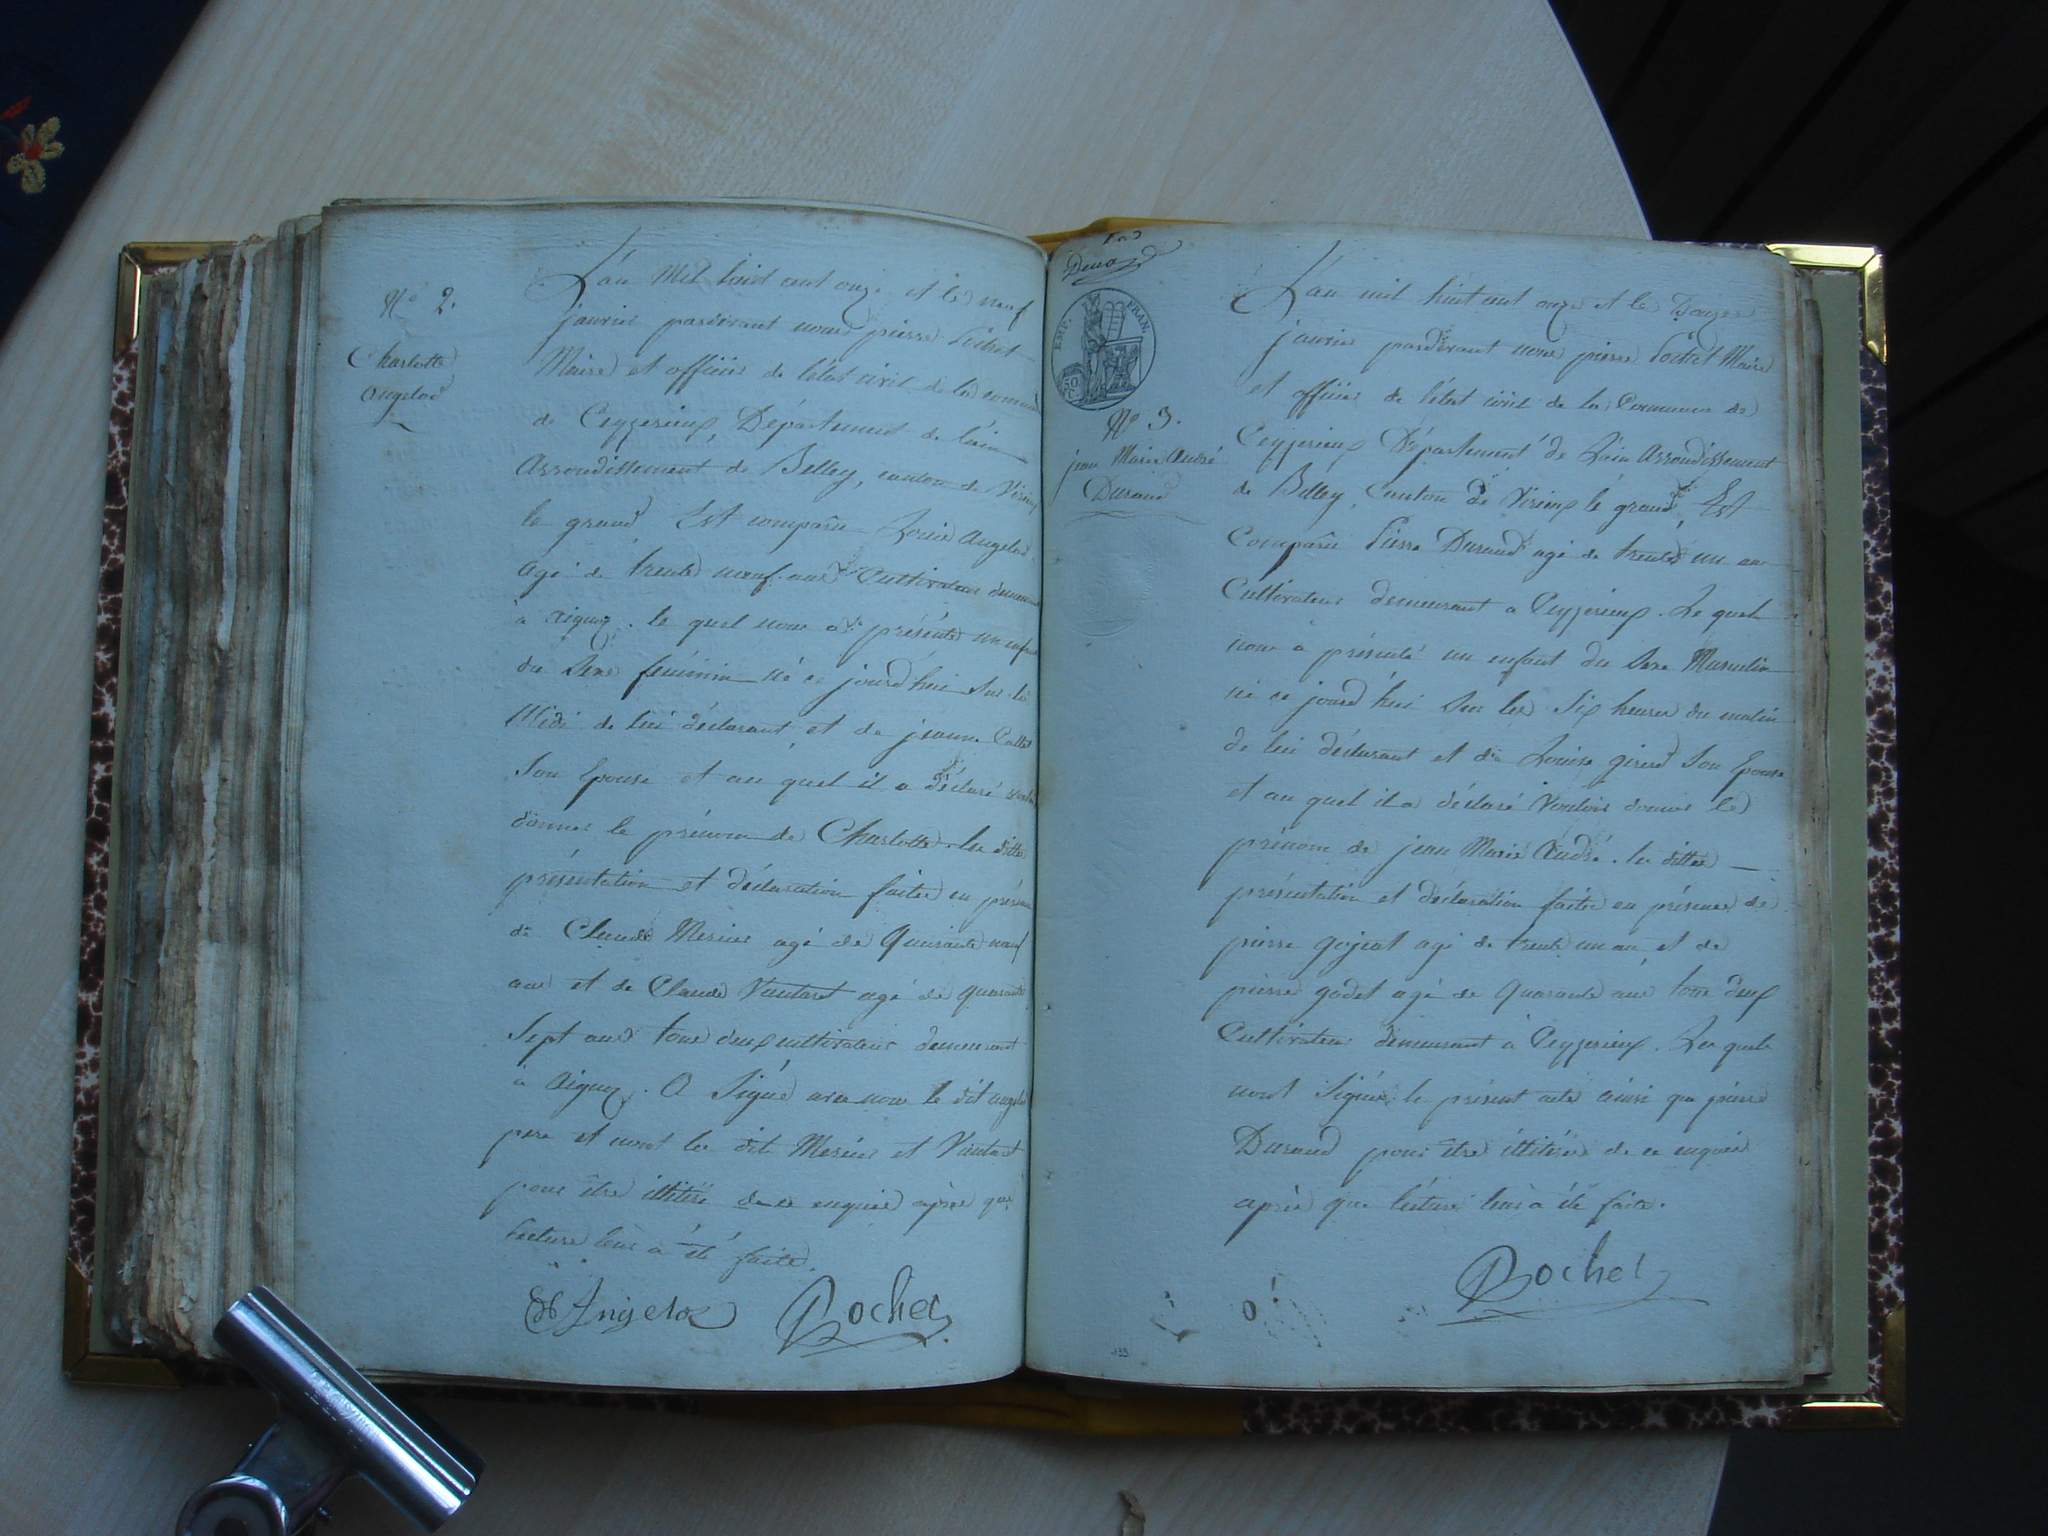 N° 2.
Charlotte
Angelod
L'an mil huit cent onze et le neuf
janvier pardevant nous pierre Rochet
Maire et officier de l'état civil de la commune
de Ceyzerieux, Département de l'ain
Arrondissement de Belley, canton de Virieux
le grand Est comparu Louis Angelod
agé de trente neuf ans Cultivateur demeurant
à aignoz. le quel nous a présenté un enfant
du sexe féminin né ce jourd'hui sur le
Midi de lui déclarant, et de jeanne
Son Epouse et au quel il a déclaré vouloir
donner le prénom de Charlotte. les dittes
présentation et déclaration faites en présence
de Claude Mercier agé de Quarante neuf
ans et de Claude Vautaret agé de quarante
Sept ans tous deux cultivateurs demeurant
à aignoz. A Signé avec nous le dit angelod
pere et nont les dits Mercier et Vautaret
pour être illitéré de ce enquis après que
lecture leur à été faite.
Angeloz Rochet
EMP. FRAN.
50 C.
N° 3.
jean Marie André
Durand
L'an mil huit cent onze et le Douze
janvier pardevant nous pierre Rochet Maire
et officier de l'état civil de la Commune de
Ceyzerieux Département de Lain Arrondissement
de Belley, Canton de Virieux le grand, Est
Comparu Pierre Durand agé de trente un an
Cultivateur demeurant a Ceyzerieux. Le quel
nous a présenté un enfant du sexe Masculin
né ce jourd'hui sur les Six heures du matin
de lui déclarant et de Louise girerd Son Epouse
et au quel il a déclaré Vouloir donner le
prénom de jean Marie André. les dittes
présentation et déclaration faites en présence de
pierre gojeat agé de trente un an, et de
pierre godet agé de Quarante ans tous deux
Cultivateurs demeurant à Ceyzerieux. Les quels
nont Signés le présent acte ainsi que pierre
Durand pour être illitérés de ce enquis
après que lecture leur à été faite.
Rochet
133